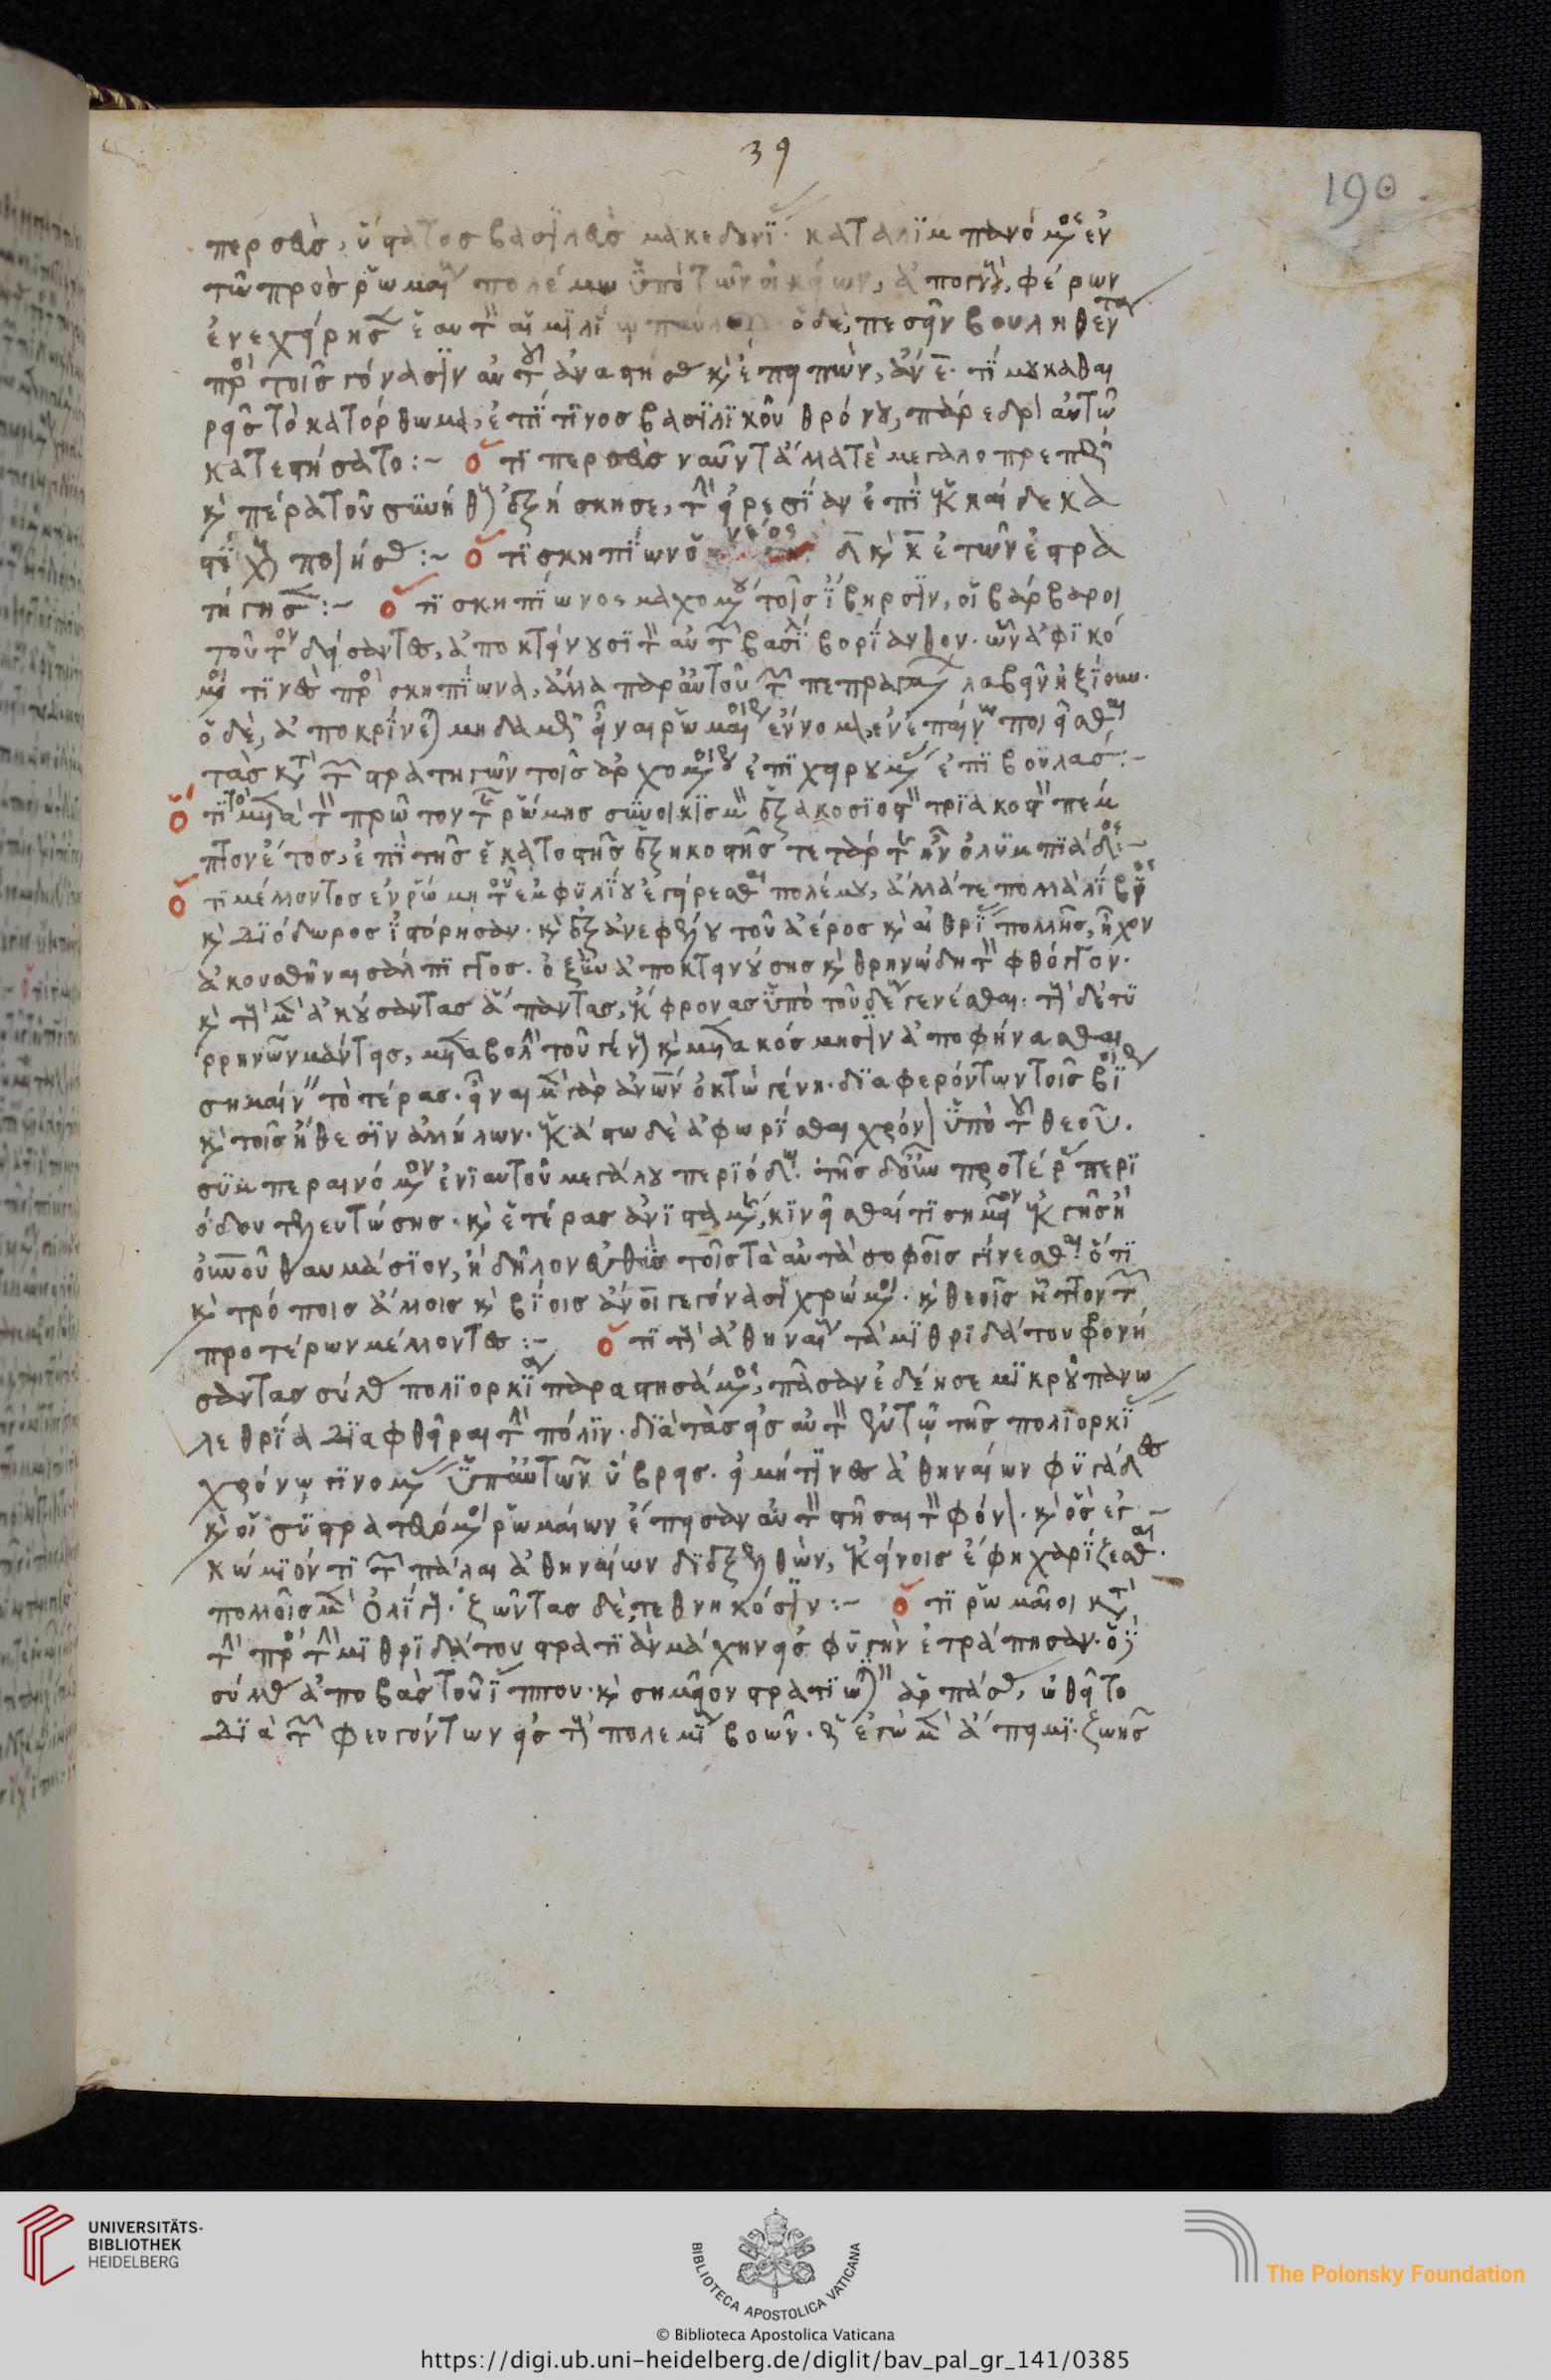 39
190.
περσεὺς, ὕστατος βασιλεὺς μακεδονί. καταλιμπανόμενος ἐν
τῶ πρὸς ῥωμαί πολέμω ὑπὸ τῶν οἰκείων, ἀπογν, φέρων
ἐνεχείρησεν ἑαυτὸν αἰμιλίω παύλω. ὁ δὲ, πεσεῖν βουληθέντα
πρὸς τοῖς γόνασιν αὐτοῦ ἀναστήσας καὶ ἐπειπὼν, ἄνε. τί μου καθαι
ρεῖς τὸ κατόρθωμα, ἐπί τινος βασιλικοῦ θρόνου, πάρεδρον αὐτῶ
κατεστήσατο :- ὅτι περσεὺς ναῦν τἄλλά τε μεγαλοπρεπῆ
καὶ πέρα τοῦ συνήθους ἐξήσκησε, τὴν εἰρεσίαν ἐπὶ ἑκκαίδεκα
στίχους ποιήσας :- ὅτι σκηπίων ὁ νέος δ καὶ κ ἐτῶν ἐστρα
τήγησεν :- ὅτι σκηπίωνος μαχομένου τοῖς ἴβηρσιν, οἱ βάρβαροι
τοῦτον δείσαντες, ἀποκτείνουσι τὸν αὐτῶν βασιλ βορίανθον. ὧν ἀφικό
μενοί τινες πρὸς σκηπίωνα, ἆλλα παρ αὐτοῦ τῶν πεπραγμένων λαβεῖν ἠξίουν.
ὁ δὲ, ἀποκρίνεται μηδαμῶς εἶναι ῥωμαίοις ἔννομον, ἐν ἐπαίνω ποιεῖσθαι
τὰς κατὰ τῶν στρατηγῶν τοῖς ἀρχομένοις ἐπιχειρουμένας ἐπιβουλάς :-
ὅτι μετὰ τὸν πρῶτον τῆς ῥώμης συνοικισμὸν ἑξακοσιοστὸν τριακοστὸν πέμ
πτον ἔτος, ἐπὶ τῆς ἑκατοστῆς ἑξηκοστῆς τετάρτης ἦν ὀλυμπιάδος :-
ὅτι μέλλοντος ἐν ῥώμη τοῦ ἐμφυλίου ἐγείρεσθαι πολέμου, ἄλλά τε πολλὰ λίβιος
καὶ διόδωρος ἱστόρησαν. καὶ ἐξ ἀνεφέλου τοῦ ἀέρος καὶ αἰθρί πολλῆς, ἦχον
ἀκουσθῆναι σάλπιγγος. ὀξὺν ἀποκτεινούσης καὶ θρηνώδη τὸν φθόγγον.
καὶ τοὺς μὲν ἀκούσαντας ἅπαντας, ἔκφρονας ὑπὸ τοῦ δέους γενέσθαι. τοὺς δὲ τυ
ρρηνῶν μάντεις, μεταβολὴν τοῦ γένους καὶ μετακόσμησιν ἀποφήνασθαι
σημαίνειν τὸ τέρας. εἶναι μὲν γὰρ ἀνων ὀκτὼ γένη. διαφερόντων τοῖς βίοις
καὶ τοῖς ἤθεσιν ἀλλήλων. ἑκάστω δὲ ἀφωρίσθαι χρόνον ὑπὸ τοῦ θεοῦ.
συμπεραινόμενον ἐνιαυτοῦ μεγάλου περιόδω. τῆς δ οὖν προτέρας περι
όδου τελευτώσης. καὶ ἑτέρας ἀνισταμένης, κινεῖσθαί τι σημεῖον ἐκ γῆς ἢ
οὐνοῦ θαυμάσιον, ἢ δῆλον εὐθὺς τοῖς τὰ αὐτὰ σοφοῖς γίνεσθαι ὅτι
καὶ τρόποις ἄλλοις καὶ βίοις ἄνοι γεγόνασι χρώμενοι. καὶ θεοῖς ἧττον τῶν
προτέρων μέλλοντες :- ὅτι τοὺς ἀθηναίους τὰ μιθριδάτου φρονή
σαντας σύλλας πολιορκίαν παραστησάμενος, πᾶσαν ἐδέησε μικροῦ πανω
λεθρία διαφθεῖραι τὴν πόλιν. διὰ τὰς εἰς αὐτὸν ἐν τῶ τῆς πολιορκί
χρόνω γινομένας ὑπ αὐτῶν ὕβρεις. εἰ μή τινες ἀθηναίων φυγάδες
καὶ οἱ συστρατευόμενοι ῥωμαίων ἔπεισαν αὐτὸν στῆσαι τὸν φόνον. καὶ ὃς ἐγ
κώμιόν τι τῶν πάλαι ἀθηναίων διεξελθὼν, ἐκείνοις ἔφη χαρίζεσθαι.
πολλοῖς μὲν ὀλίγους. ζῶντας δὲ, τεθνηκόσιν :- ὅτι ῥωμαῖοι κατὰ
τὴν πρὸς τὴν μιθριδάτου στρατιὰν μάχην εἰς φυγὴν ἐτράπησαν. ὅτι
σύλλας ἀποβὰς τοῦ ἵππου. καὶ σημεῖον στρατιωτικὸν ἁρπάσας, ὠθεῖτο
διὰ τῶν φευγόντων εἰς τοὺς πολεμί βοῶν. ἐγὼ μὲν ἄπειμι. ζωῆς
UNIVERSITÄTS-
BIBLIOTHEK
HEIDELBERG
BIBLIOTECA APOSTOLICA VATICANA
The Polonsky Foundation
© Biblioteca Apostolica Vaticana
https://digi.ub.uni-heidelberg.de/diglit/bav_pal_gr_141/0385